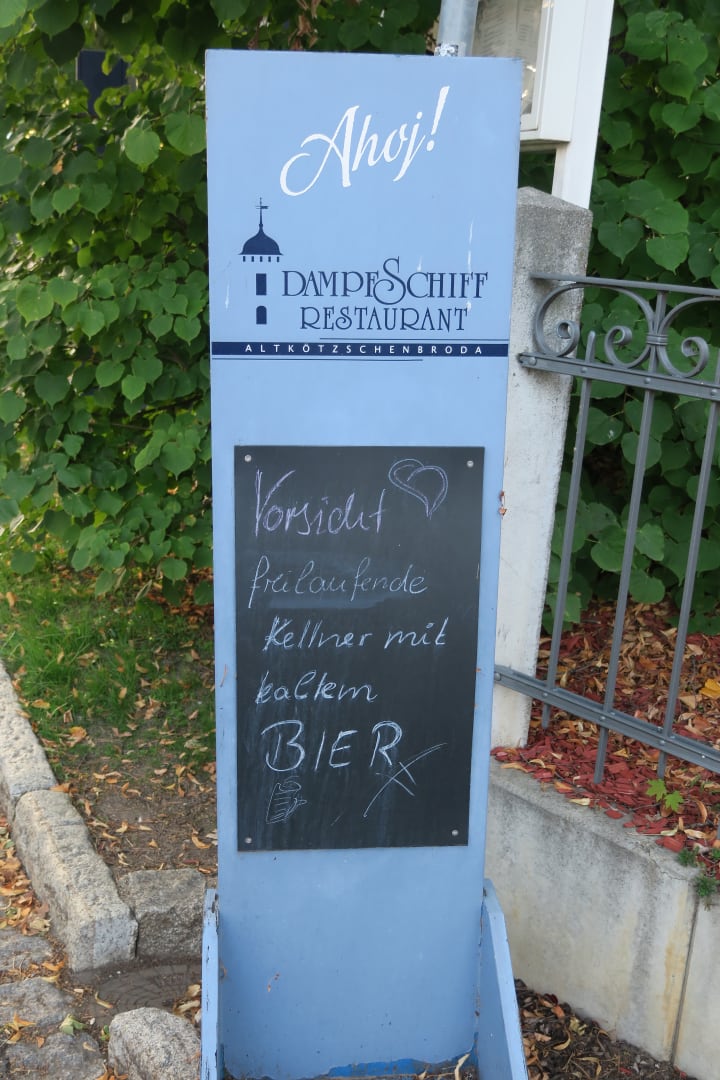 Ahoj!
DAMPFSCHIFF
RESTAURANT
ALTKÖTZSCHENBRODA
Vorsicht
freilaufende
Kellner mit
kaltem
BIER